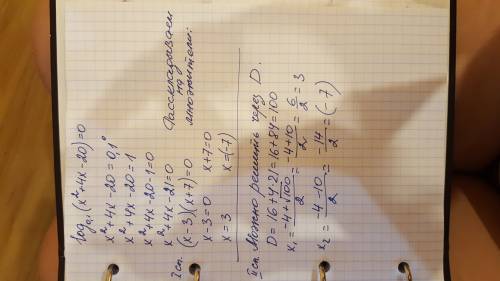 log₀,₁(x²+4x-20)=0
x²+4x-20=0,1⁰
x²+4x-20=1
x²+4x-20-1=0
x²+4x-21=0
I сп. (x-3)(x+7)=0 Расскладываем на множители:
x-3=0 x+7=0
x=3 x=(-7)
II сп. Можно решить через D.
D=16+4·21=16+84=100
x₁=(-4+√100)/2=(-4+10)/2=6/2=3
x₂=(-4-10)/2=-14/2=(-7)